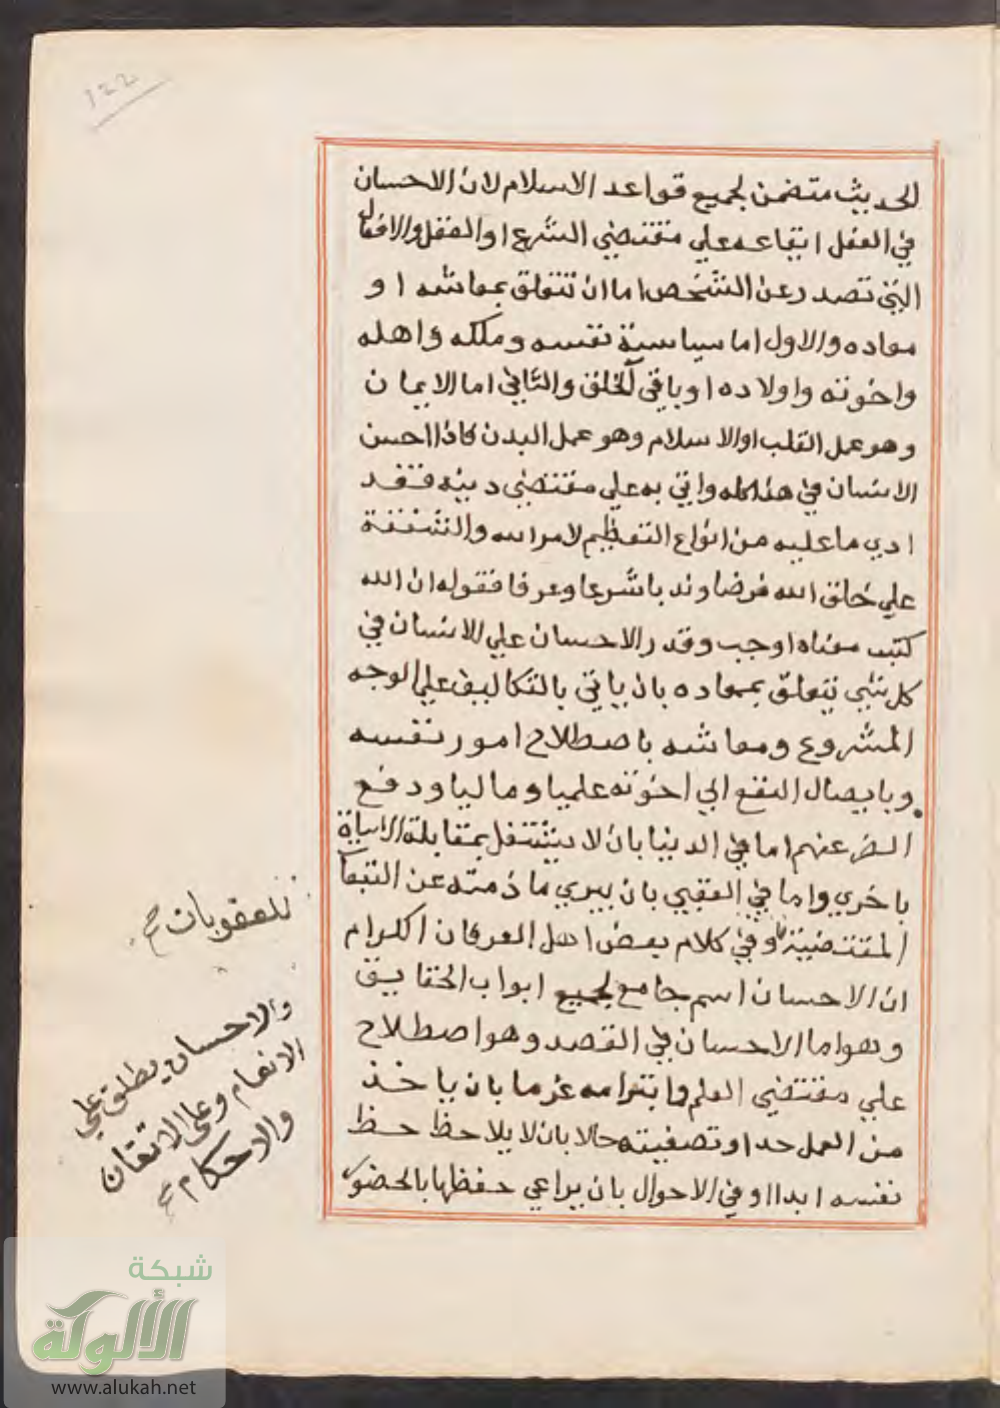 ١٢٢
الحديث متضمن لجميع قواعد الاسلام لان الاحسان
في الفعل ايقاعه علي مقتضي الشرع او العقل والافعال
التي تصدر عن الشخص اما ان تتعلق بمعاشه او
معاده والاول اما سياسة نفسه وملكه واهله
واخوته واولاده او باقي الخلق والثاني اما الايمان
وهو عمل القلب او الاسلام وهو عمل البدن فاذا احسن
الانسان في هذا كله واتي به علي مقتضي دينه فقد
ادي ما عليه من انواع التعظيم لامر الله والشفقة
علي خلق الله فرضا وندبا شرعا وعرفا فقوله ان الله
كتب معناه اوجب وقدر الاحسان علي الانسان في
كل شي يتعلق بمعاده بان ياتي بالتكاليف علي الوجه
المشروع ومعاشه باصطلاح امور نفسه
وبايصال النفع الي اخوته علميا وماليا ودفع
الضر عنهم اما في الدنيا بان لا يشتغل بمقابلة الاساءة
باخري واما في العقبي بان يبري ما ذمته عن التبعا
المقتضية وفي كلام بعض اهل العرفان الكرام
ان الاحسان اسم جامع لجميع ابواب الحقايق
وهو اما الاحسان في القصد وهو اصطلاح
علي مقتضي العلم وابترامه عزما بان ياخذ
من العمل حدا وتصفيته حالا بان لا يلاحظ حظ
نفسه ابدا او في الاحوال بان يراعي حفظها بالحضور
للعقوبات صح
والاحسان يطلق علي
الانعام وعلي الاتقان
والاحكام
شبكة
الألوكة
www.alukah.net